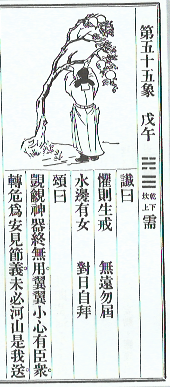 第五十五象　戊午　䷄　乾下坎上　需
讖曰
懼則生戒　無遠勿屆
水邊有女　對日自拜
頌曰
覬覦神器終無用翼翼小心有臣衆
轉危爲安見節義未必河山是我送